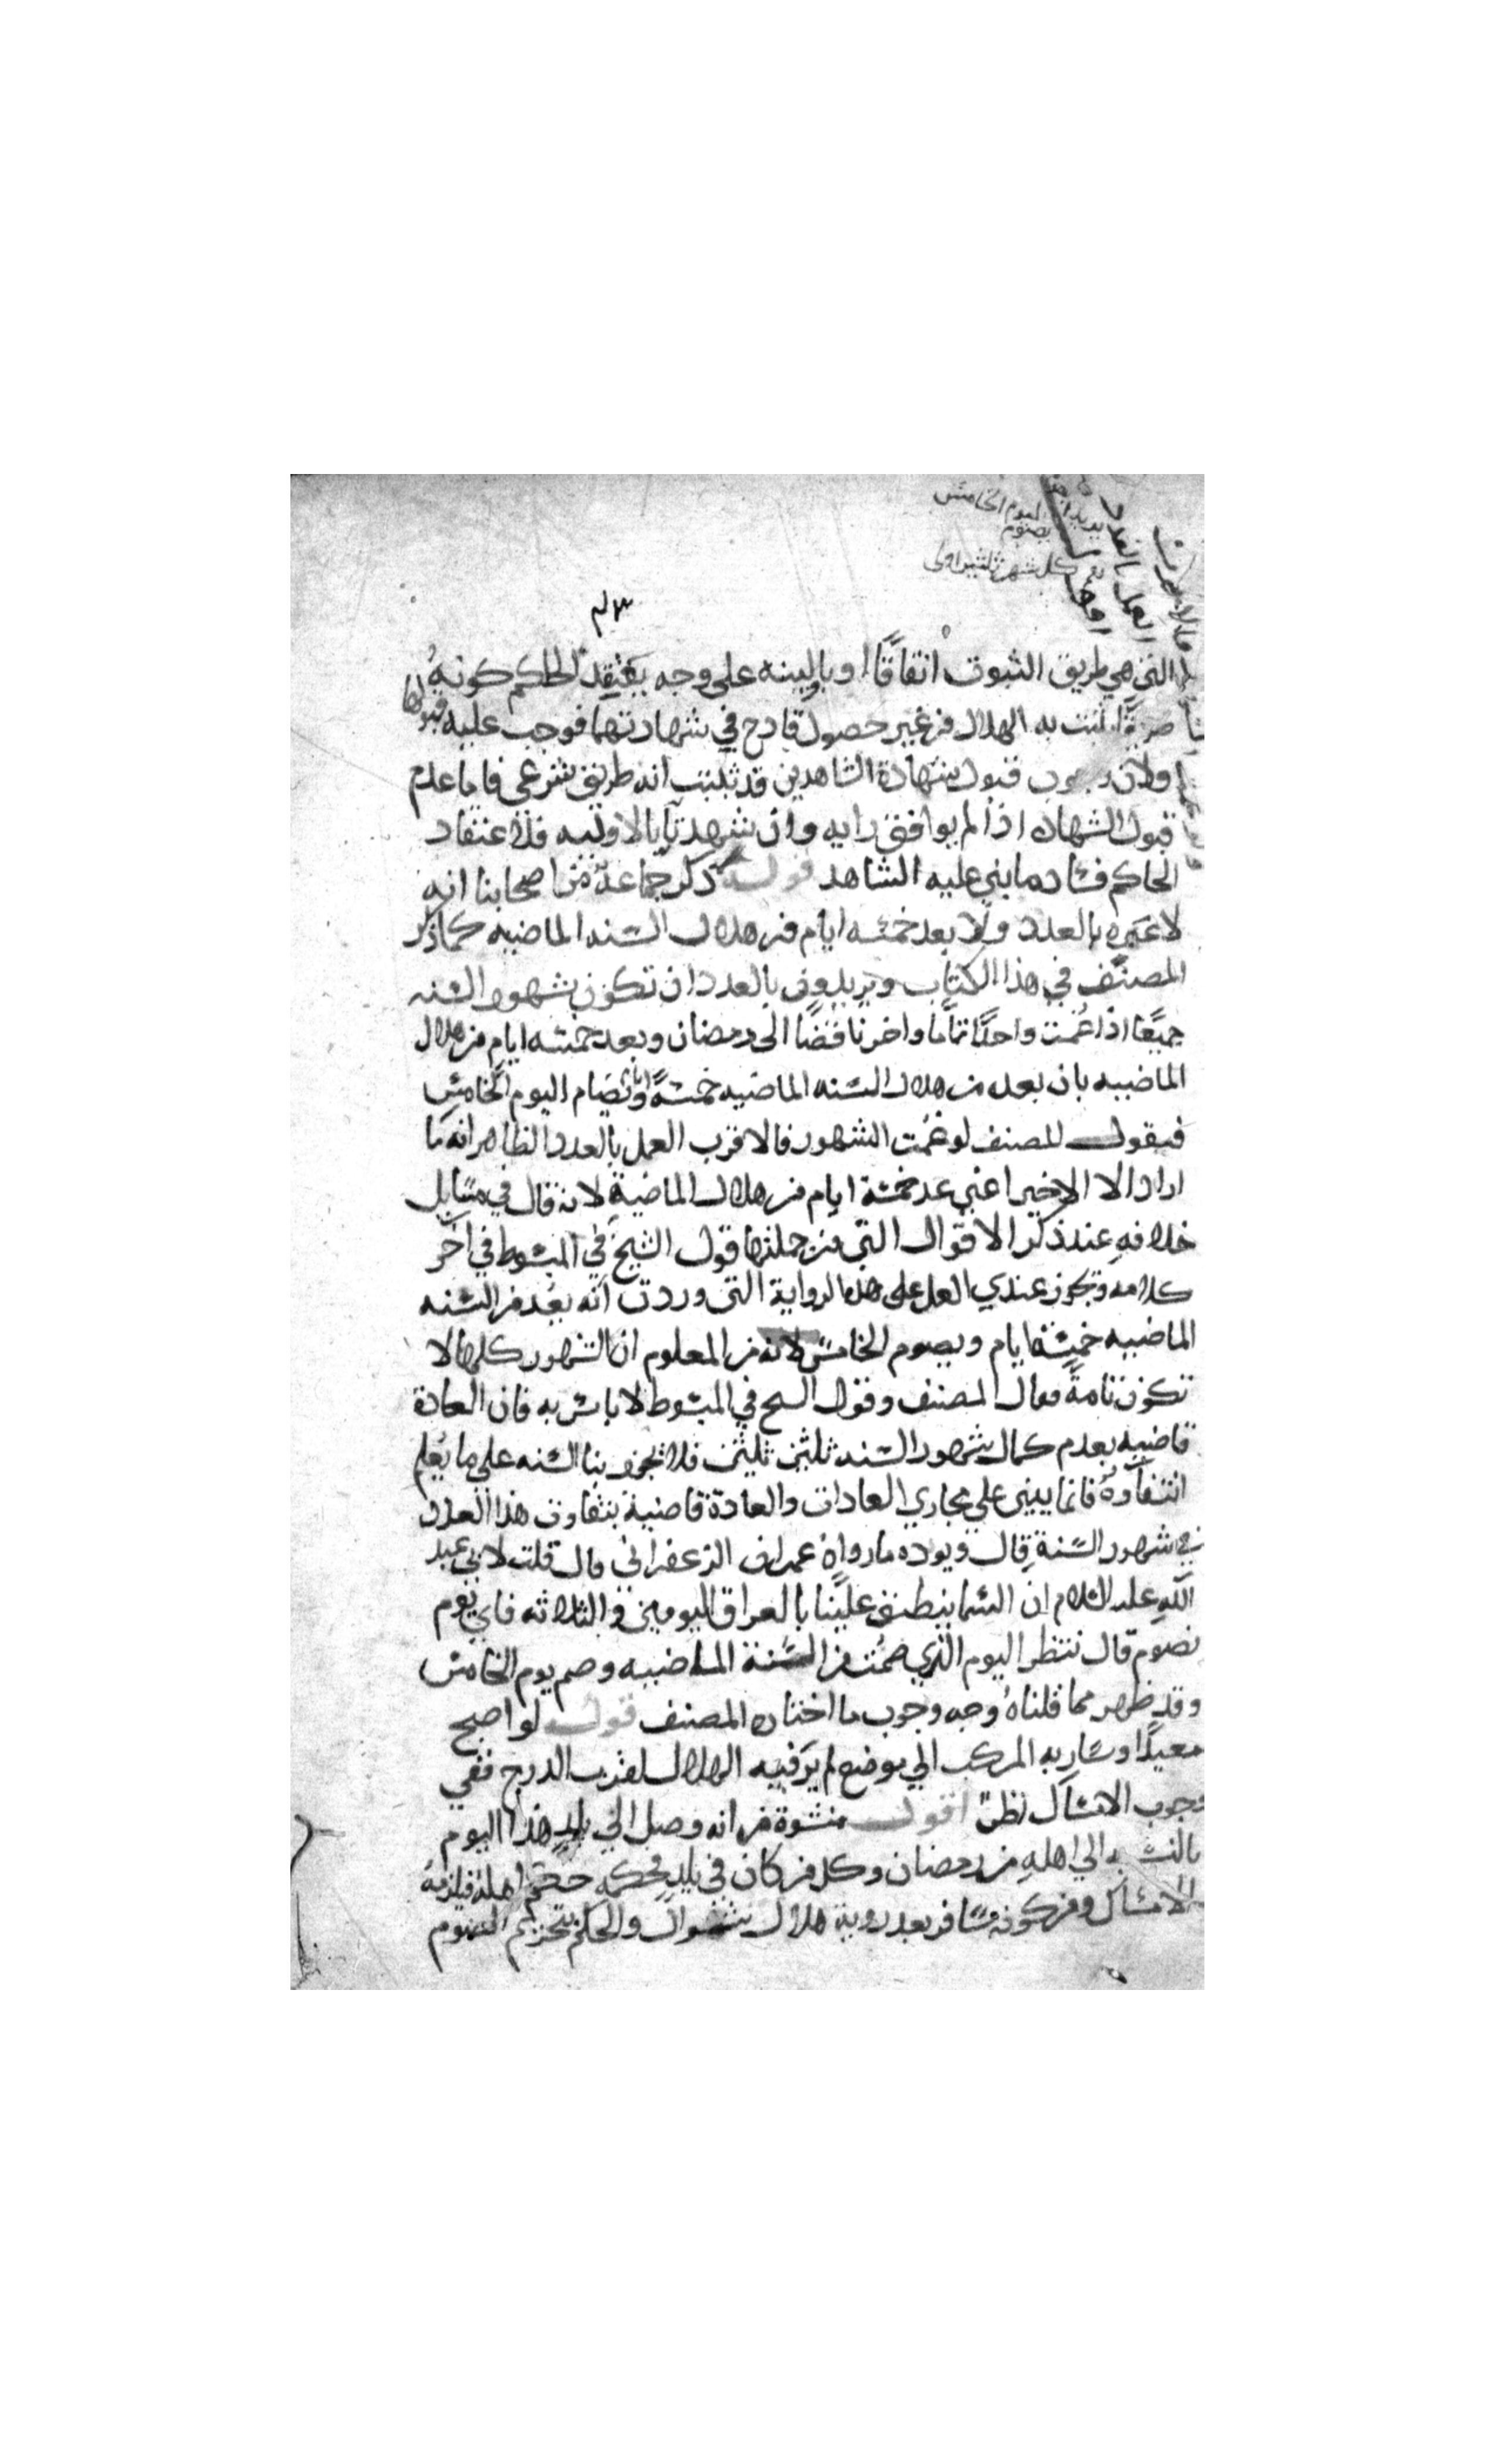 اليوم الخامس
يصوم
كل شهر ثلثين اولى
العمل بالعدد
التي هي طريق الثبوت اتفاقًا او بالبينه على وجه يعتقد الحاكم كونه
يثبت به الهلال من غير حصول قادح في شهادتهما فوجب عليه قبولها
ولان وجوب قبول شهادة الشاهدين قد ثبتت انه طريق شرعي فاما عدم
قبول الشهاده اذا لم يوافق رايه وان شهدتا بالاوليه فلاعتقاد
الحاكم فساد ما بنى عليه الشاهد قوله ذكر جماعة من اصحابنا انه
لا عبره بالعدد ولا بعد خمسه ايام من هلال السنه الماضيه كما ذكر
المصنف في هذا الكتاب ويريدون بالعدد ان تكون شهور السنه
جميعًا اذا غمت واحدًا تمامًا واخر ناقصًا الى رمضان وبعد خمسه ايام من هلال
الماضيه بان يعد من هلال السنه الماضيه خمسة ايام وتصام اليوم الخامس
فيقول المصنف لو غمت الشهور فالاقرب العمل بالعدد الظاهر انه ما
اراد الا الاخير اعني عد خمسة ايام من هلال الماضية لانه قال في مسايل
خلافه عند ذكر الاقوال التي من جملتها قول الشيخ في المبسوط في آخر
كلامه ويجوز عندي العمل على هذه الرواية التي وردت انه يعد من السنه
الماضيه خمسة ايام ويصوم الخامس لانه من المعلوم ان الشهور كلها لا
تكون تامة فقال المصنف وقول الشيخ في المبسوط لا باس به فان العادة
قاضيه بعدم كمال شهور السنه ثلثين ثلثين فلا يجوز بنا السنه على ما يعلم
انتفاؤه فانما يبنى على مجاري العادات والعادة قاضية بتفاوت هذا العدد
في شهور السنة قال ويوده ما رواه عمران الزعفراني قال قلت لابي عبد
الله عليه السلام ان السما ينطبق علينا بالعراق اليومين والثلاثه فاي يوم
نصوم قال ننتظر اليوم الذي صمت من السنة الماضيه وصم يوم الخامس
وقد ظهر مما قلناه وجه وجوب ما اختاره المصنف قوله لو اصبح
معيدًا وسار به المركب الى موضع لم ير فيه الهلال لقرب الدرج ففي
وجوب الامساك نظر اقول منشوه من انه وصل الى بلد هذا اليوم
بالنسبه الى اهله من رمضان وكل من كان في بلد فحكمه حكم اهله فيلزمه
الامساك ومن كونه سافر بعد روية هلال شوال والحكم بتحريم الصوم